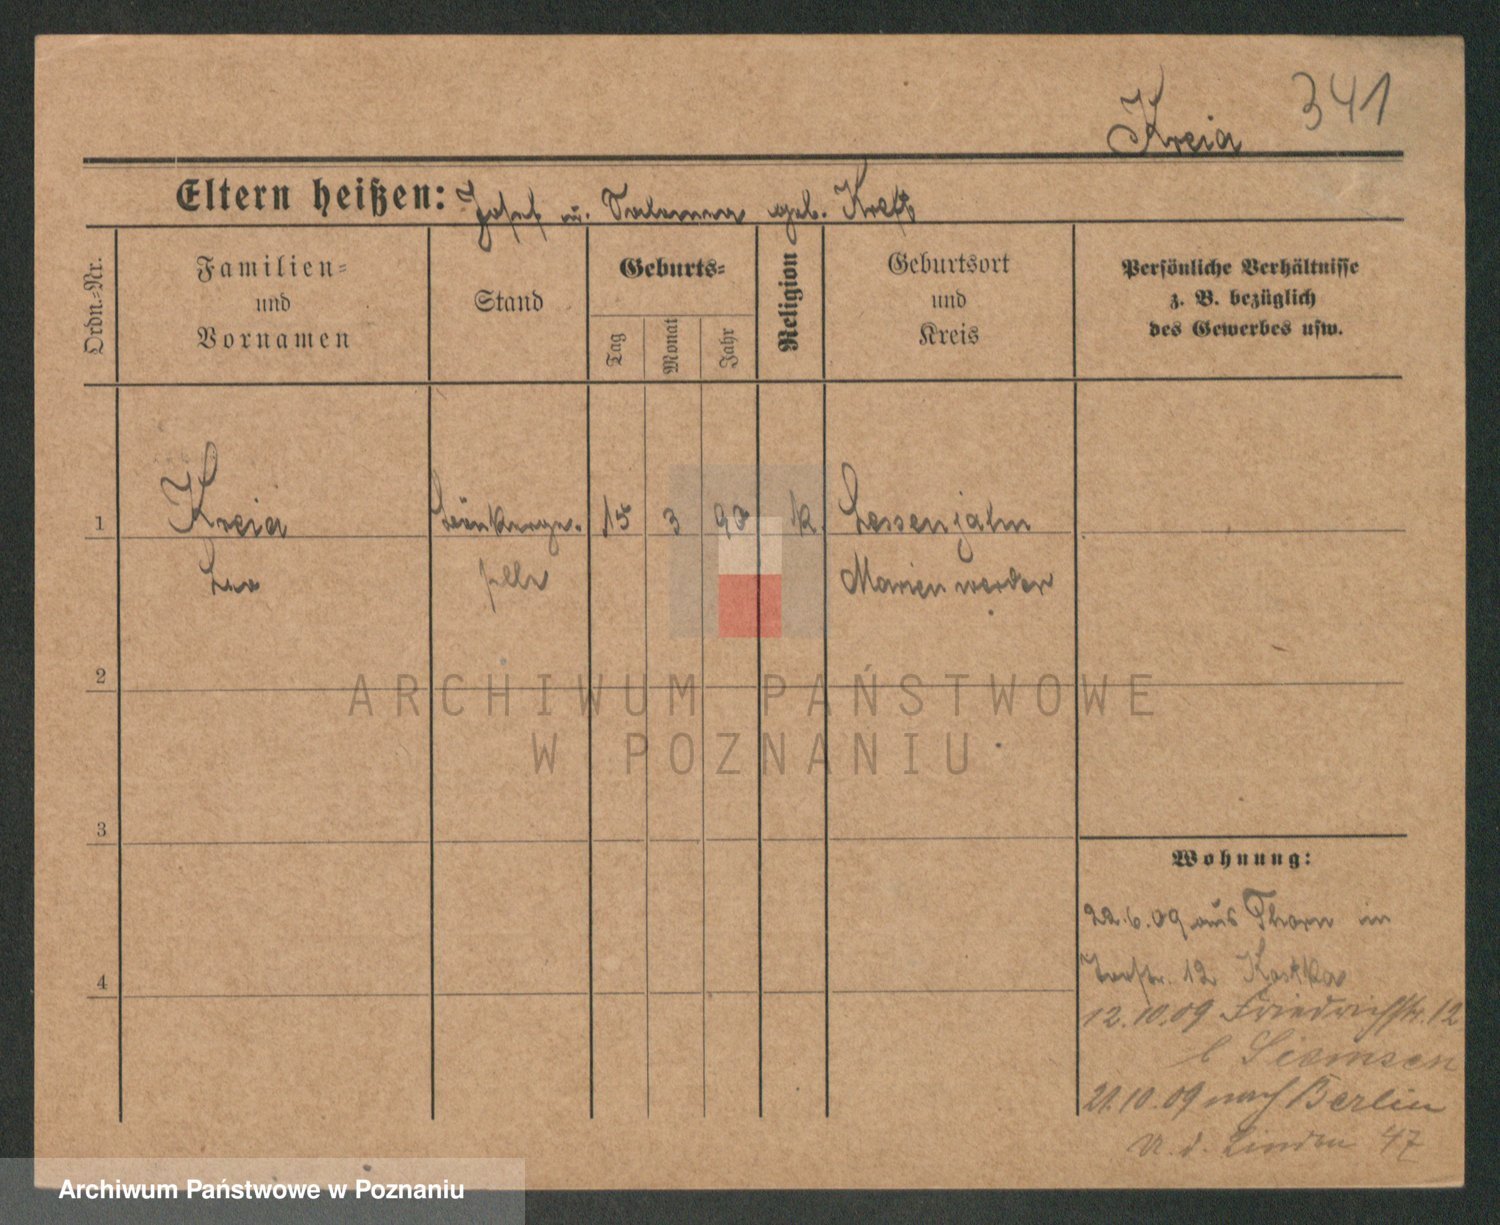 Kreia 341
Eltern heißen: Josef u. Salomea geb. Kreft
Ordn.=Nr.
Familien=
und
Vornamen
Stand
Geburts=
Tag
Monat
Jahr
Religion
Geburtsort
und
Kreis
Persönliche Verhältnisse
z. B. bezüglich
des Gewerbes usw.
1 Kreia 15 3 k.
Leo selle Marienwerder
2
3
4
ARCHIWUM PAŃSTWOWE
W POZNANIU
Wohnung:
22.6.09 aus Thorn in
12 Kostka
12.10.09 Friedrichstr. 12
b Siemsen
21.10.09 nach Berlin
U. d. Linden 47
Archiwum Państwowe w Poznaniu